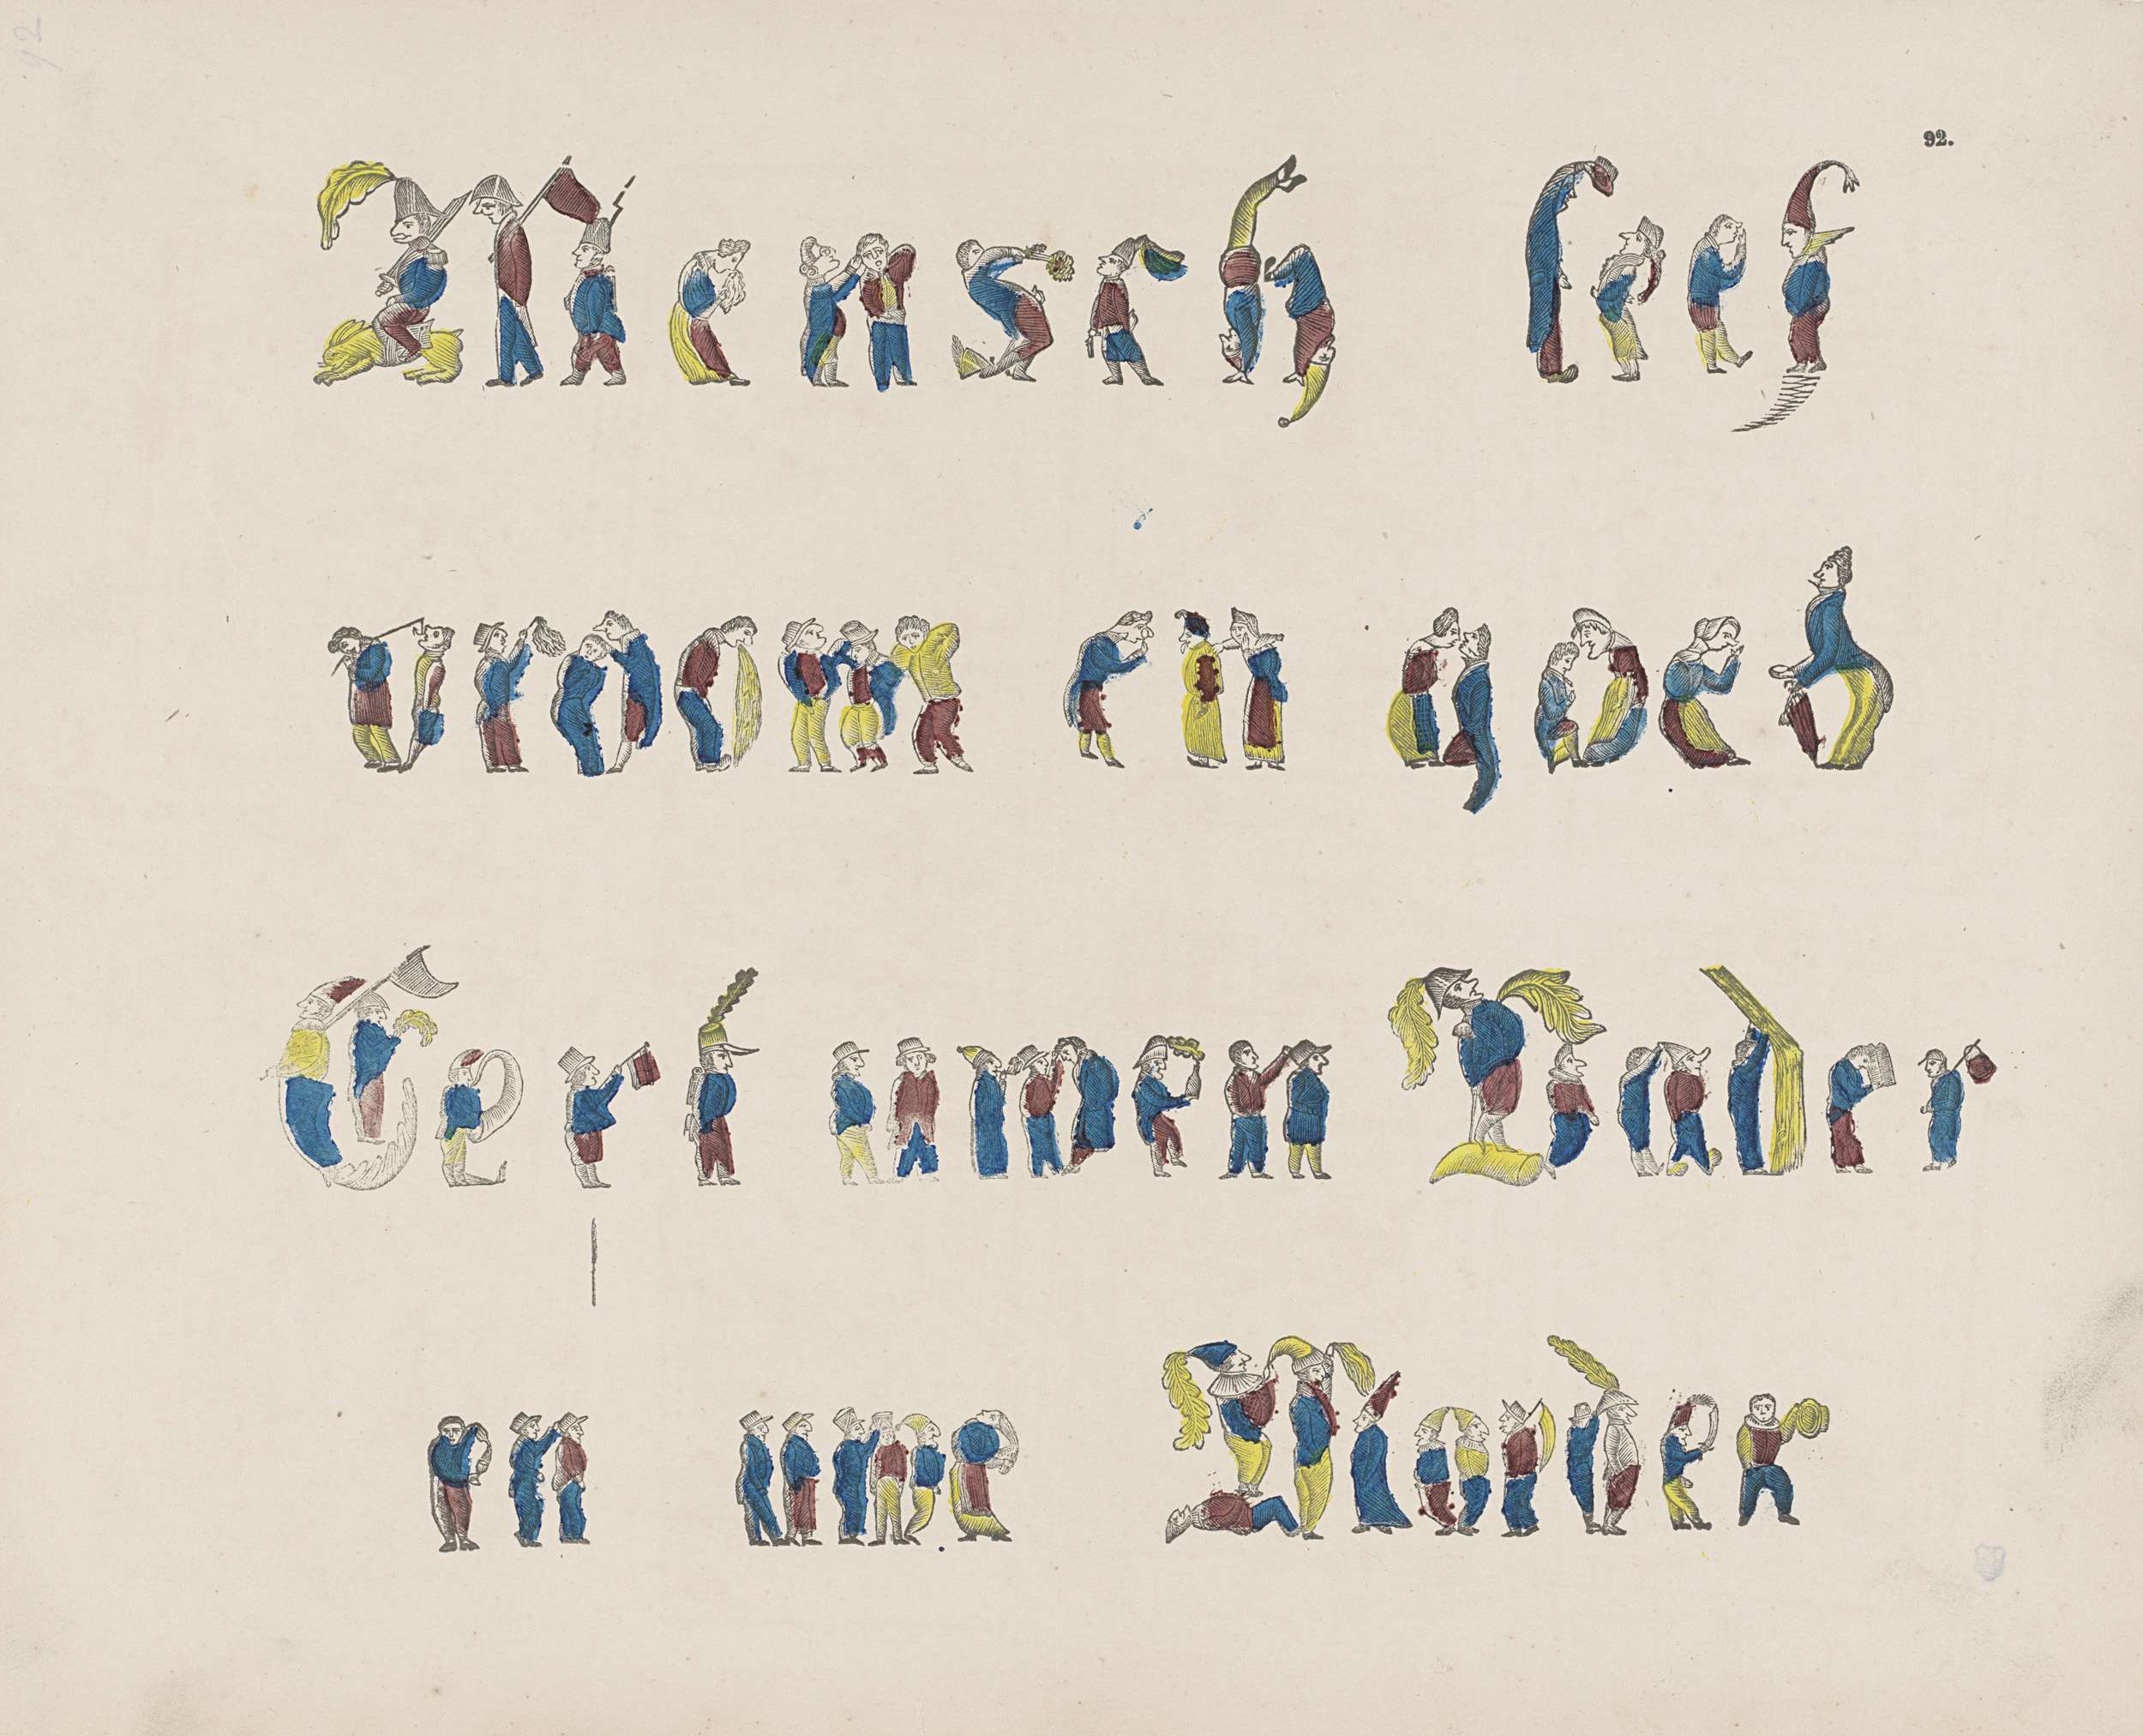 92
92.
Mensch leef
vroom en goed
Eert uwen Vader
en uwe Moeder